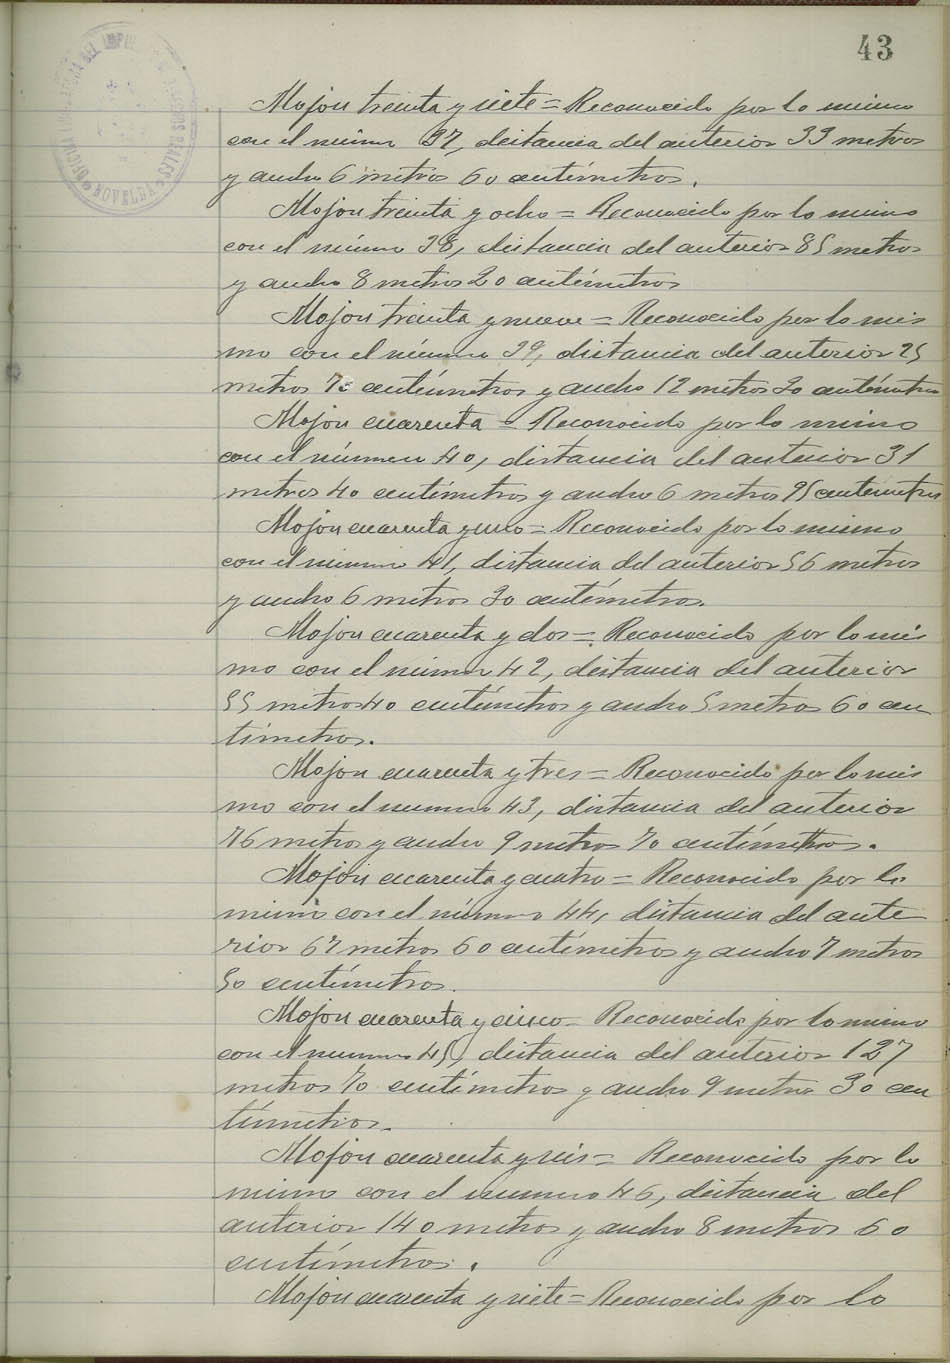 43
Mojon treinta y siete = Reconocido por lo mismo
con el número 37, distancia del anterior 33 metros
y ancho 6 metros 60 centímetros.
Mojon treinta y ocho = Reconocido por lo mismo
con el número 38, distancia del anterior 85 metros
y ancho 8 metros 20 centímetros
Mojon treinta y nueve = Reconocido por lo mis
mo con el número 39, distancia del anterior 25
metros 70 centímetros y ancho 12 metros 30 centímetros
Mojon cuarenta = Reconocido por lo mismo
con el número 40, distancia del anterior 31
metros 40 centímetros y ancho 6 metros 95 centímetros
Mojon cuarenta y uno = Reconocido por lo mismo
con el número 41, distancia del anterior 56 metros
y ancho 6 metros 30 centímetros.
Mojon cuarenta y dos = Reconocido por lo mis
mo con el número 42, distancia del anterior
55 metros 40 centímetros y ancho 5 metros 60 cen
tímetros.
Mojon cuarenta y tres = Reconocido por lo mis
mo con el numero 43, distancia del anterior
76 metros y ancho 9 metros 70 centímetros.
Mojon cuarenta y cuatro = Reconocido por lo
mismo con el número 44, distancia del ante
rior 67 metros 60 centímetros y ancho 7 metros
50 centímetros.
Mojon cuarenta y cinco = Reconocido por lo mismo
con el numero 45, distancia del anterior 127
metros 70 centímetros y ancho 9 metros 30 cen
tímetros.
Mojon cuarenta y seis = Reconocido por lo
mismo con el numero 46, distancia del
anterior 140 metros y ancho 8 metros 60
centímetros.
Mojon cuarenta y siete = Reconocido por lo